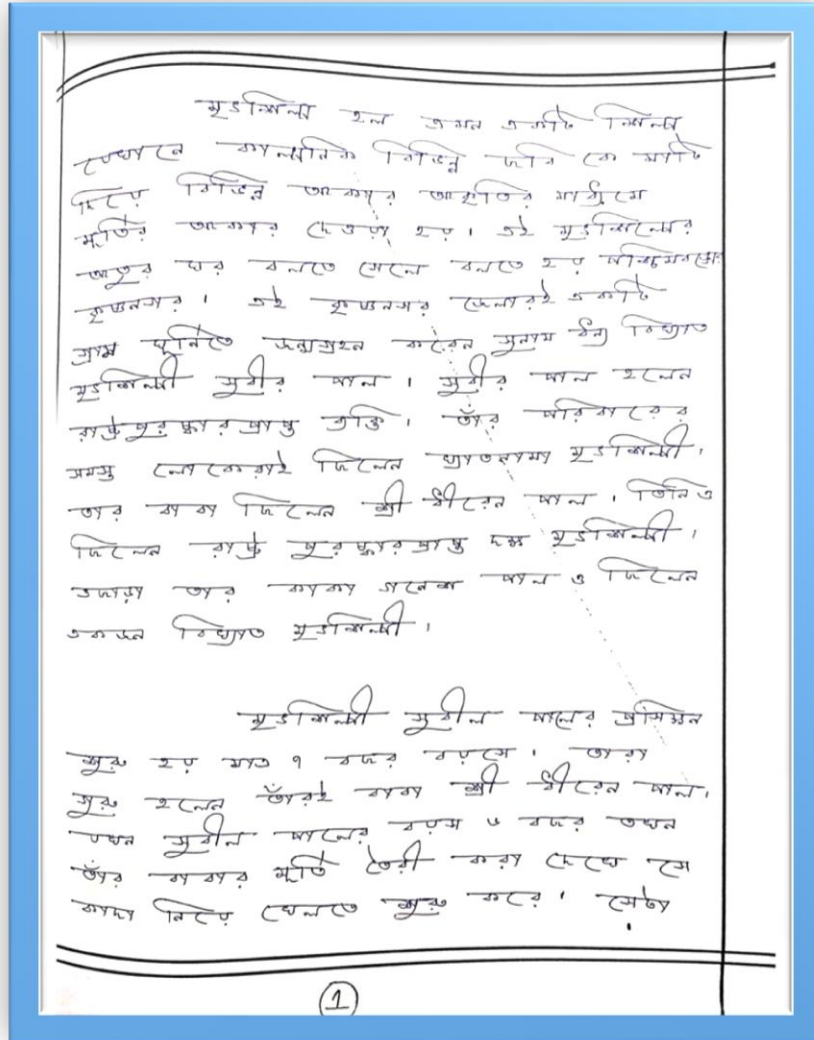 মৃৎশিল্প হল এমন একটি শিল্প
যেখানে কাল্পনিক বিভিন্ন ছবি কে মাটি
দিয়ে বিভিন্ন আকার আকৃতির মাধ্যমে
মূর্তির আকার দেওয়া হয়। এই মৃৎশিল্পের
আতুর ঘর বলতে গেলে বলতে হয় পশ্চিমবঙ্গের
কৃষ্ণনগর। এই কৃষ্ণনগর জেলারই একটি
গ্রাম ঘূর্নিতে জন্মগ্রহন করেন সুনাম ধন্য বিখ্যাত
মৃৎশিল্পী সুবীর পাল। সুবীর পাল হলেন
রাষ্ট্রপুরষ্কারপ্রাপ্ত ব্যক্তি। তাঁর পরিবারের
সমস্ত লোকেরাই ছিলেন খ্যাতনামা মৃৎশিল্পী।
তার বাবা ছিলেন শ্রী বীরেন পাল। তিনিও
ছিলেন রাষ্ট্র পুরষ্কারপ্রাপ্ত দক্ষ মৃৎশিল্পী।
এছাড়া তার কাকা গনেশ পাল ও ছিলেন
একজন বিখ্যাত মৃৎশিল্পী।
মৃৎশিল্পী সুবীল পালের প্রসিক্ষন
শুরু হয় মাত্র ৭ বছর বয়সে। তারা
গুরু হলেন তাঁরই বাবা শ্রী বীরেন পাল।
যখন সুবীল পালের বয়স ৬ বছর তখন
তাঁর বাবার মূর্তি তৈরী করা দেখে সে
কাদা নিয়ে খেলতে শুরু করে। সেটা
1